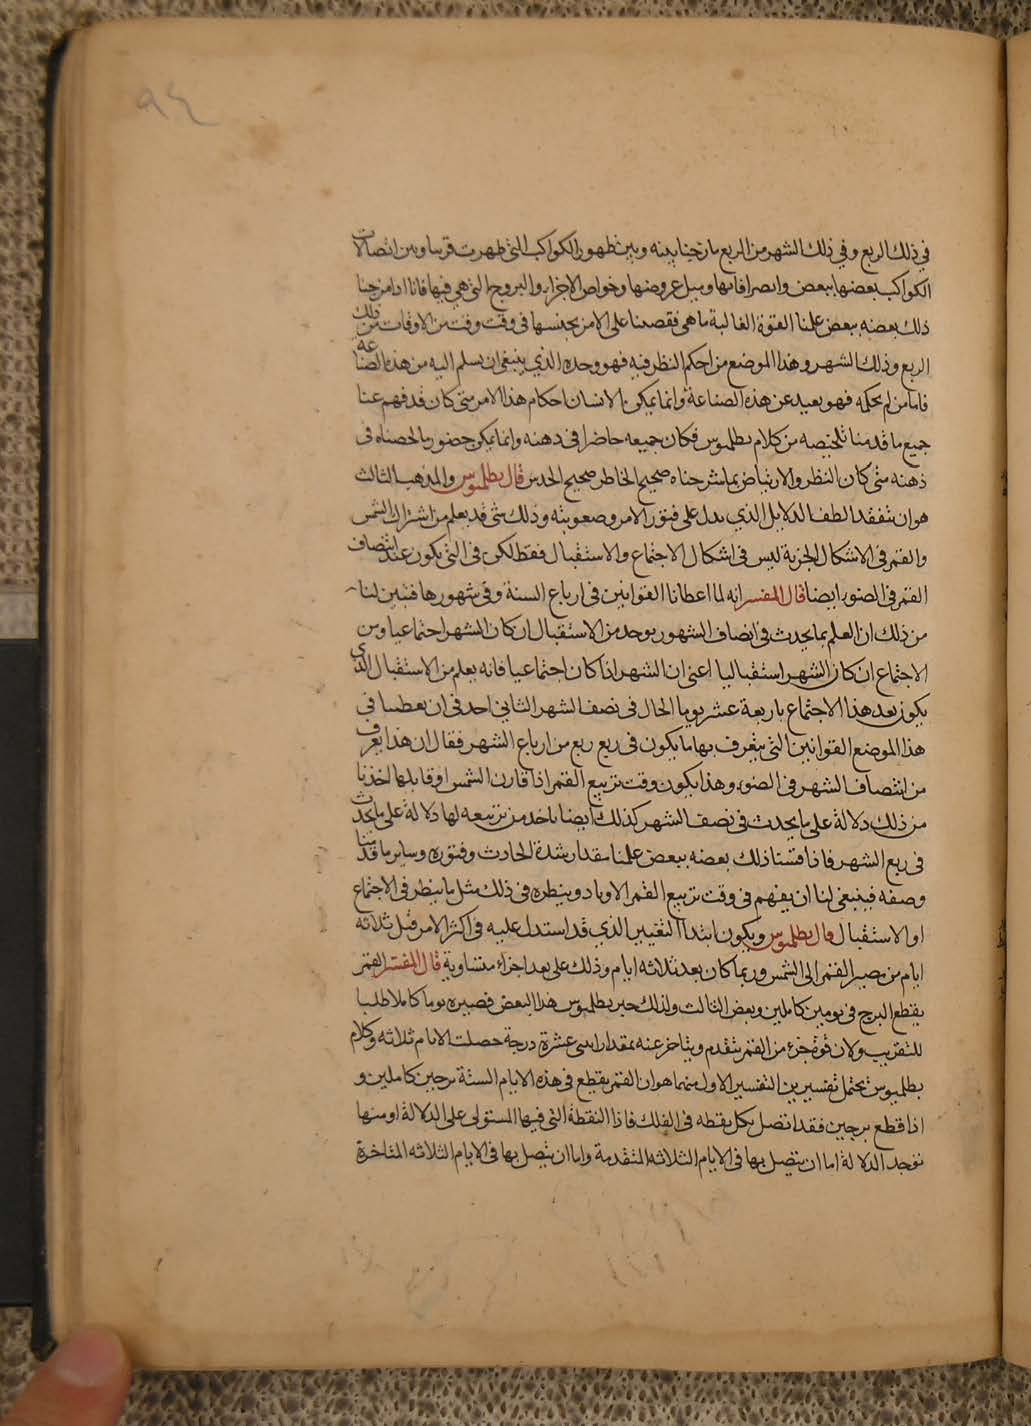 ٩٤
في ذلك الربع وفي ذلك الشهر من الربع مازجنا بينه وبين ظهور الكواكب التي ظهرت قريبا وبين اتصالات
الكواكب بعضها ببعض وانصرافاتها وميل عروضها وخواص الاجزاء والبروج التي هي فيها فانا اذا مزجنا
ذلك بعضه ببعض علمنا القوة الغالبة ما هي فقصنا على الامر بجنسها في وقت وقت من الاوقات من ذلك
الربع وذلك الشهر وهذا الموضع من احكم النظر فيه فهو وحده الذي ينبغي ان يسلم اليه من هذه الصناعة
فاما من لم يحكمه فهو بعيد عن هذه الصناعة وانما يمكن الانسان احكام هذا الامر متى كان قد فهم عنا
جميع ما قدمنا تلخيصه من كلام بطلميوس فكان جميعه حاضرا في ذهنه وانما يمكن حضور ما لخصناه في
ذهنه متى كان النظر والارتياض بما شرحناه صحيح الخاطر صحيح الحدس قال بطلميوس والمذهب الثالث
هو ان نتفقد الطف الدلايل الذي يدل على فتور الامر وصعوبته وذلك شي قد يعلم من اشتراك الشمس
والقمر في الاشكال الجزية ليس في اشكال الاجتماع والاستقبال فقط لكن في التي تكون عند انتصاف
القمر في الضوء ايضا قال المفسر انه لما اعطانا القوانين في ارباع السنة وفي شهورها فتبين لنا
من ذلك ان العلم بما يحدث في انصاف الشهور يوجد من الاستقبال ان كان الشهر اجتماعيا ومن
الاجتماع ان كان الشهر استقباليا اعني ان الشهر اذا كان اجتماعيا فانه يعلم من الاستقبال الذي
يكون بعد هذا الاجتماع باربعة عشر يوما الحال في نصف الشهر الثاني اخذ في ان يعطينا في
هذا الموضع القوانين التي يتعرف بها ما يكون في ربع ربع من ارباع الشهر فقال ان هذا يعرف
من انتصاف الشهر في الضوء وهذا يكون وقت تربيع القمر اذا قارن الشمس او قابلها اخذنا
من ذلك دلالة على ما يحدث في نصف الشهر كذلك ايضا ناخذ من تربيعه لها دلالة على ما يحدث
في ربع الشهر فاذا قسنا ذلك بعضه ببعض علمنا مقدار شدة الحادث وفتوره وساير ما قدمنا
وصفه فينبغي لنا ان نفهم في وقت تربيع القمر الاوتاد وينظره في ذلك مثل ما ينظر في الاجتماع
او الاستقبال قال بطلميوس ويكون ابتدا التغيير الذي قد استدل عليه في اكثر الامر قبل ثلاثه
ايام من مصير القمر الى الشمس وربما كان بعد ثلاثه ايام وذلك على بعد اجزاء متساوية قال المفسر القمر
يقطع البرج في يومين كاملين وبعض الثالث ولذلك جبر بطلميوس هذا البعض فصيره يوما كاملا طلبا
للتقريب ولان قوة جزء من القمر يتقدم ويتاخر عنه بمقدار اثنى عشرة درجة حصلت الايام ثلاثه وكلام
بطلميوس يحتمل تفسيرين التفسير الاول منهما هو ان القمر يقطع في هذه الايام الستة برجين كاملين و
اذا قطع برجين فقد اتصل بكل نقطه في الفلك فاذا النقطة التي فيها المستولى على الدلالة او منها
نوجد الدلالة اما ان يتصل بها في الايام الثلاثه المتقدمة واما ان يتصل بها في الايام الثلاثه المتاخرة